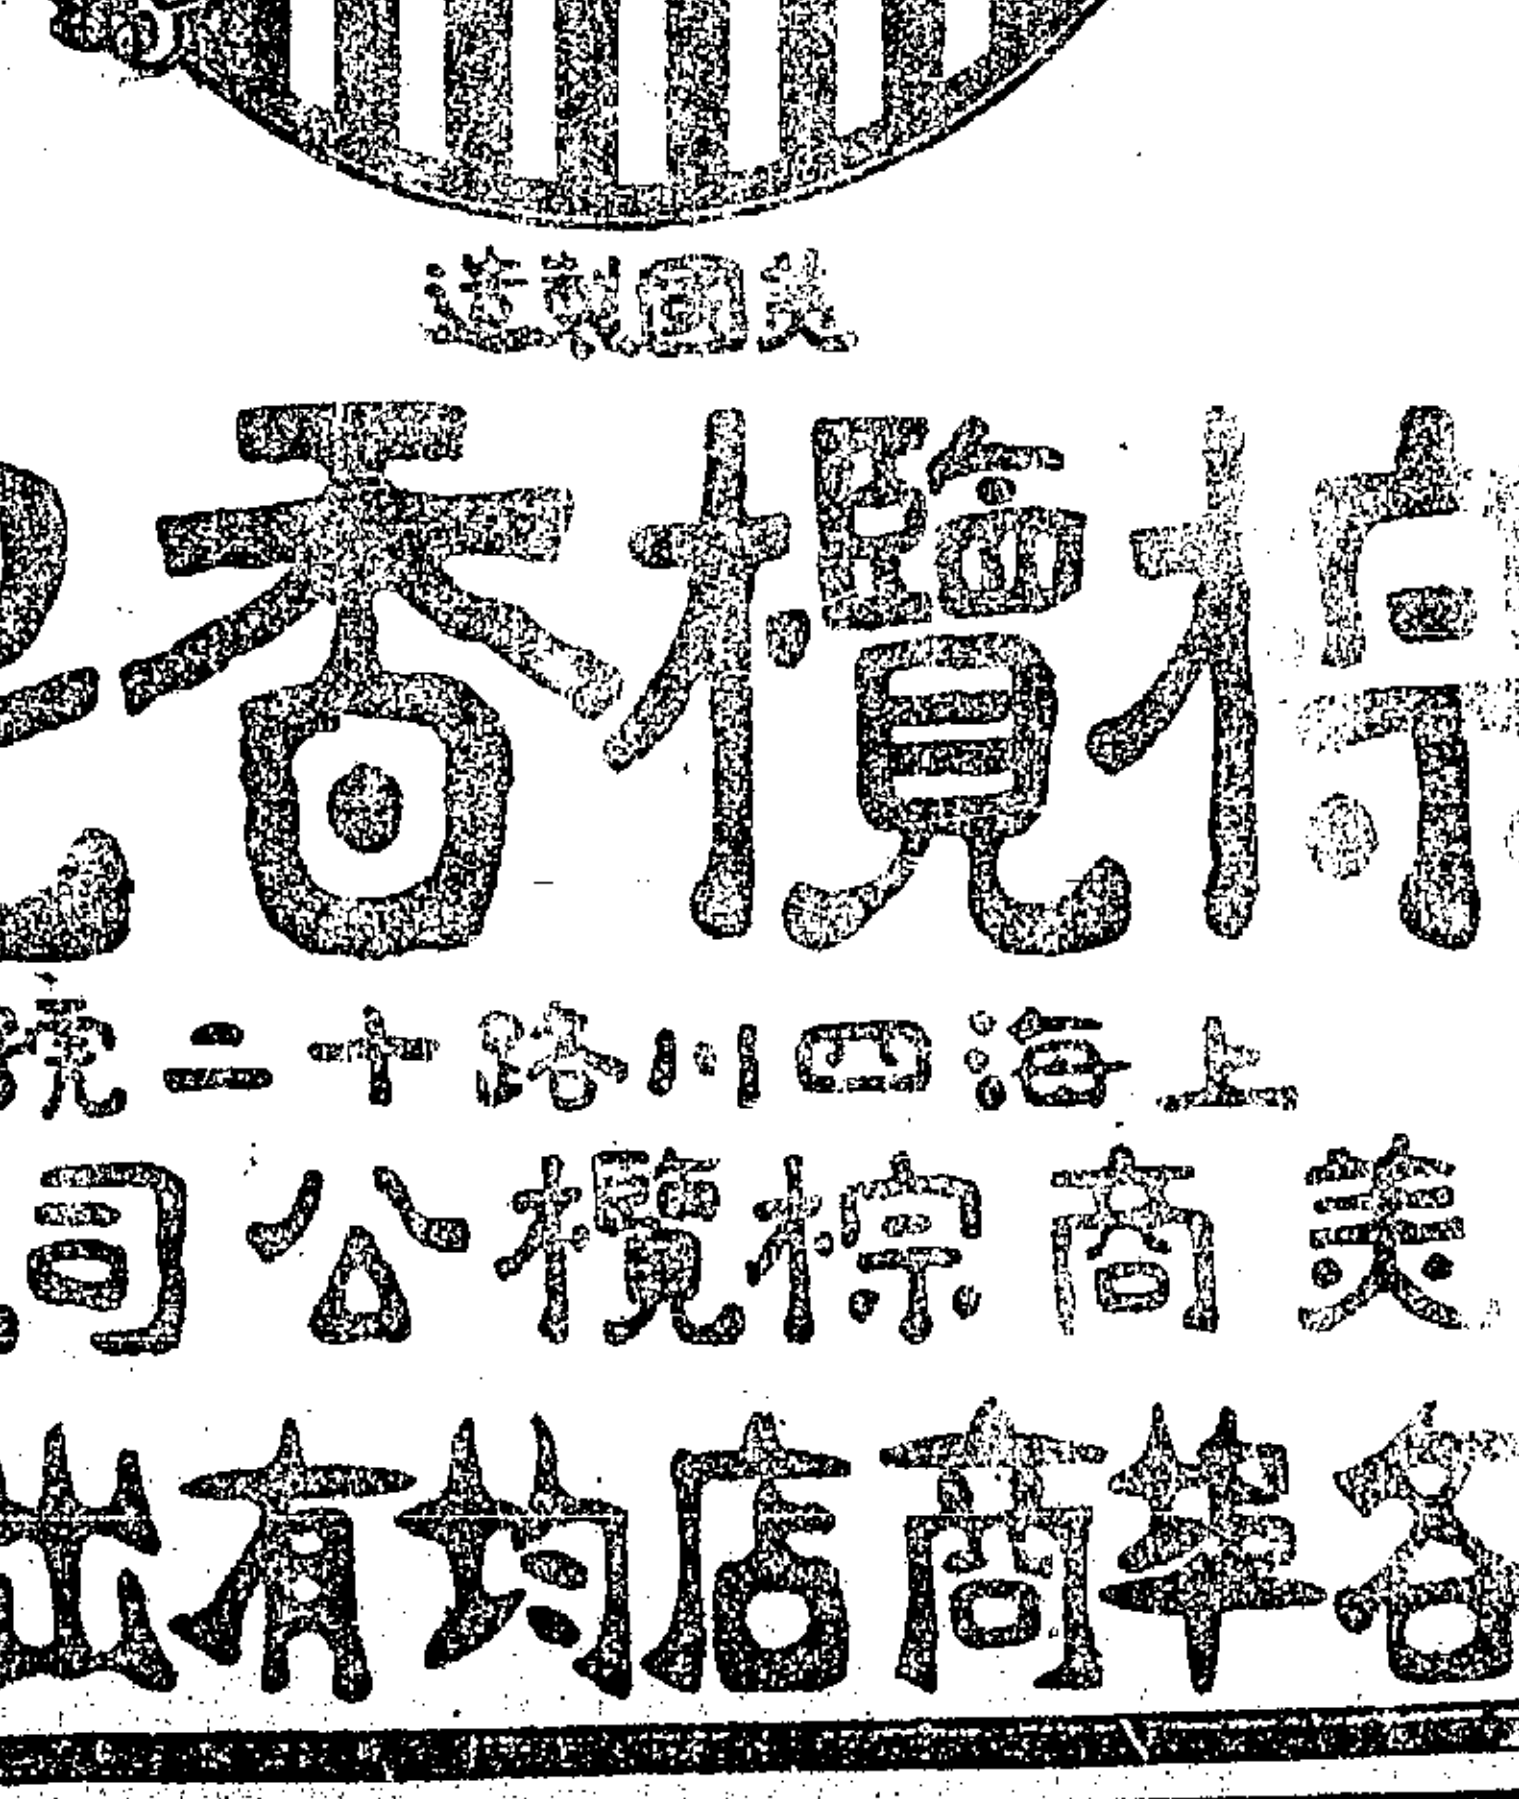 美國製造
棕欖香
上海四川路十二號
美商棕欖公司
各華商店均有出